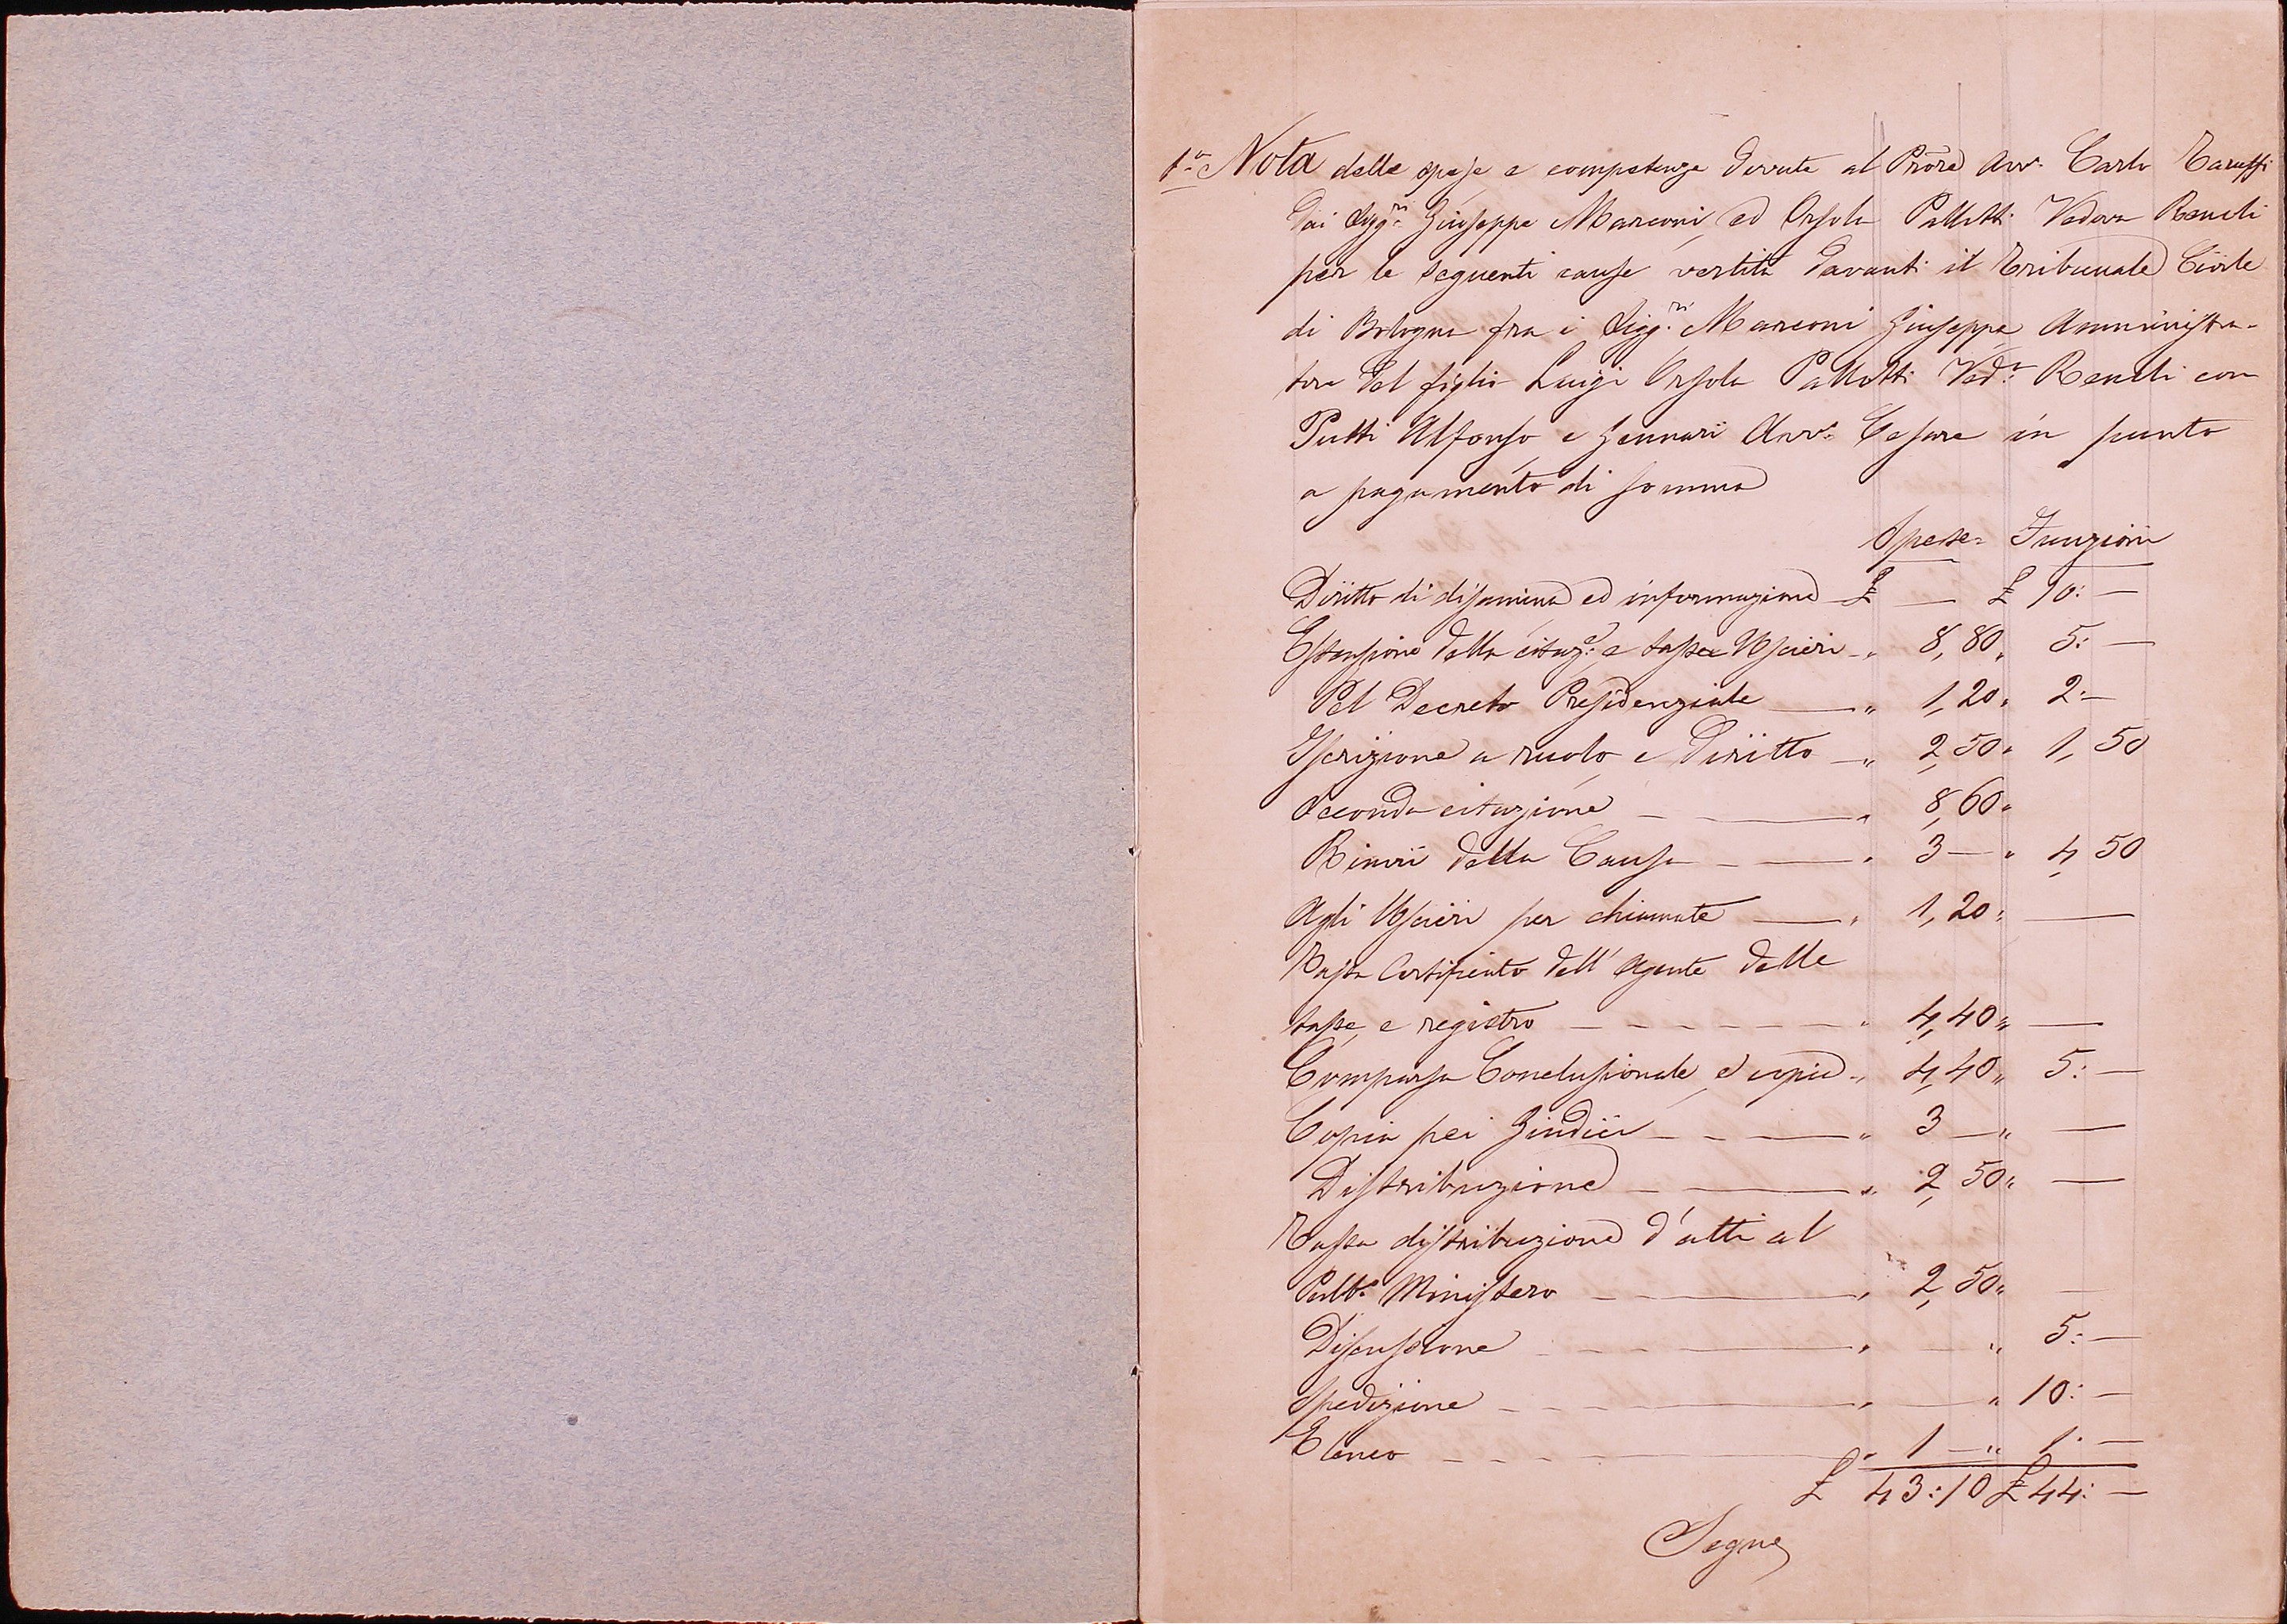 1.a Nota delle spese e competenze dovute al Proc.re Avv. Carlo Taruffi
dai Sigg.ri Giuseppe Marconi ed Orsola Pallotti Vedova
per le seguenti cause vertite davanti il Tribunale Civile
di Bologna fra i Sigg.ri Marconi Giuseppe Amministra-
tore del figlio Luigi Orsola Pallotti Ved.a con
Putti Alfonso e Gennari Avv.o Cesare in punto
a pagamento di somma
Spese= Funzioni
Diritto di disamina ed informazione £ — £ 10: —
Estensione della citaz.e e tassa Uscieri „ 8,80 „ 5: —
Pel Decreto Presidenziale — „ 1,20 „ 2: —
Iscrizione a ruolo e Diritto — „ 2,50 „ 1,50
Seconda citazione — „ 8,60 „
Rinvii della Causa — „ 3 — „ 4,50
Agli Uscieri per chiamate — „ 1,20 „ —
Tassa Certificato dell'Agente delle
tasse e registro — „ 4,40 „ —
Comparsa Conclusionale e copia „ 4,40 „ 5: —
Copia pei Giudici — „ 3 — „ —
Distribuzione — „ 2,50 „ —
Tassa distribuzione d'atti al
Pubb.o Ministero — „ 2,50 „ —
Discussione — „ — „ 5: —
Spedizione — „ — „ 10: —
Elenco — „ 1 — „ 1: —
£ 43:10 £ 44: —
Segue